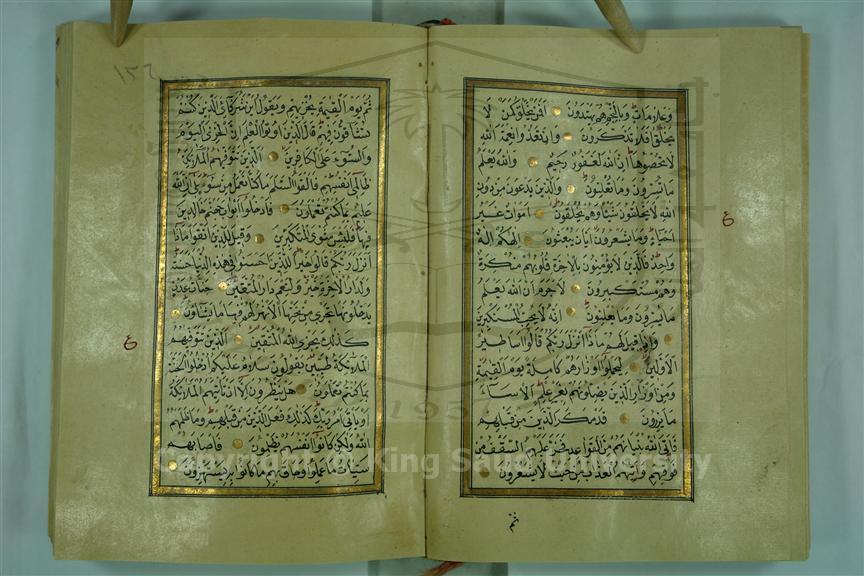 وعلامات وبالنجم هم يهتدون افمن يخلق كمن لا
يخلق افلا تذكرون وان تعدوا نعمة الله
لا تحصوها ان الله لغفور رحيم والله يعلم
ما تسرون وما تعلنون والذين يدعون من دون
الله لا يخلقون شيئا وهم يخلقون اموات غير
احياء وما يشعرون ايان يبعثون الهكم اله
واحد فالذين لا يؤمنون بالاخرة قلوبهم منكرة
وهم مستكبرون لا جرم ان الله يعلم
ما يسرون وما يعلنون انه لا يحب المستكبرين
واذا قيل لهم ماذا انزل ربكم قالوا اساطير
الاولين ليحملوا اوزارهم كاملة يوم القيمة
ومن اوزار الذين يضلونهم بغير علم الا ساء
ما يزرون قد مكر الذين من قبلهم
فاتى الله بنيانهم من القواعد فخر عليهم السقف من
فوقهم واتيهم العذاب من حيث لا يشعرون
ع
ثم
ثم يوم القيمة يخزيهم ويقول اين شركائى الذين كنتم
تشاقون فيهم قال الذين اوتوا العلم ان الخزى اليوم
والسوء على الكافرين الذين تتوفيهم الملائكة
ظالمى انفسهم فالقوا السلم ما كنا نعمل من سوء بلى ان الله
عليم بما كنتم تعملون فادخلوا ابواب جهنم خالدين
فيها فلبئس مثوى المتكبرين وقيل للذين اتقوا ماذا
انزل ربكم قالوا خيرا للذين احسنوا فى هذه الدنيا حسنة
ولدار الاخرة خير ولنعم دار المتقين جنات عدن
يدخلونها تجرى من تحتها الانهار لهم فيها ما يشاؤن
كذلك يجزى الله المتقين الذين تتوفيهم
الملائكة طيبين يقولون سلام عليكم ادخلوا الجنة
بما كنتم تعملون هل ينظرون الا ان تاتيهم الملائكة
او ياتى امر ربك كذلك فعل الذين من قبلهم وما ظلمهم
الله ولكن كانوا انفسهم يظلمون فاصابهم
سيئات ما عملوا وحاق بهم ما كانوا به يستهزؤن
ع
Copyright © King Saud University
195